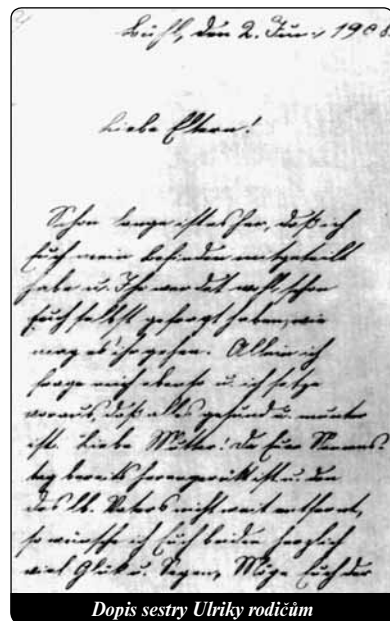 Bühl, den 2. Juni 1908.
Liebe Eltern!
Schon lange ist es her, daß ich
Euch mein Befinden mitgeteilt
habe u. Ihr werdet wohl schon
Euch selbst gefragt haben, wie
mag es ihr gehen. Allein ich
frage mich ebenso u. ich setze
voraus, daß alles gesund u. munter
ist. Liebe Mutter! Da Euer Namens-
tag bereits herangerückt ist u. den
des lb. Vaters nicht weit entfernt,
so wünsche ich Euch beiden herzlich
viel Glück u. Segen, Möge Euch der
Dopis sestry Ulriky rodičům